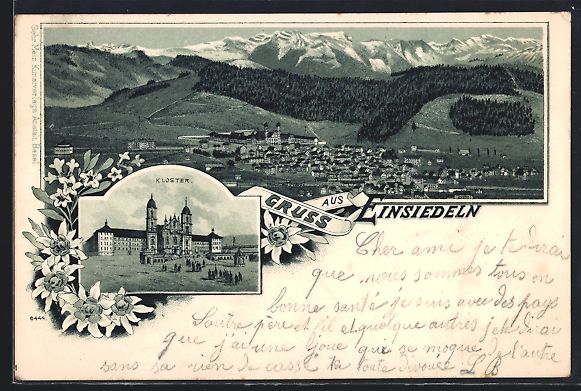 Gebr. Metz, Kunstverlags Anstalt, Basel
KLOSTER.
GRUSS AUS EINSIEDELN
6444
Cher ami je te dirai
que nous sommes tous en
bonne santé je suis avec des pays
Sautre père et fil et quelque autres je te dirai
que j'ai une joue qui se moque de l'autre
sans sa rien de cassé ta toute dévouée L B